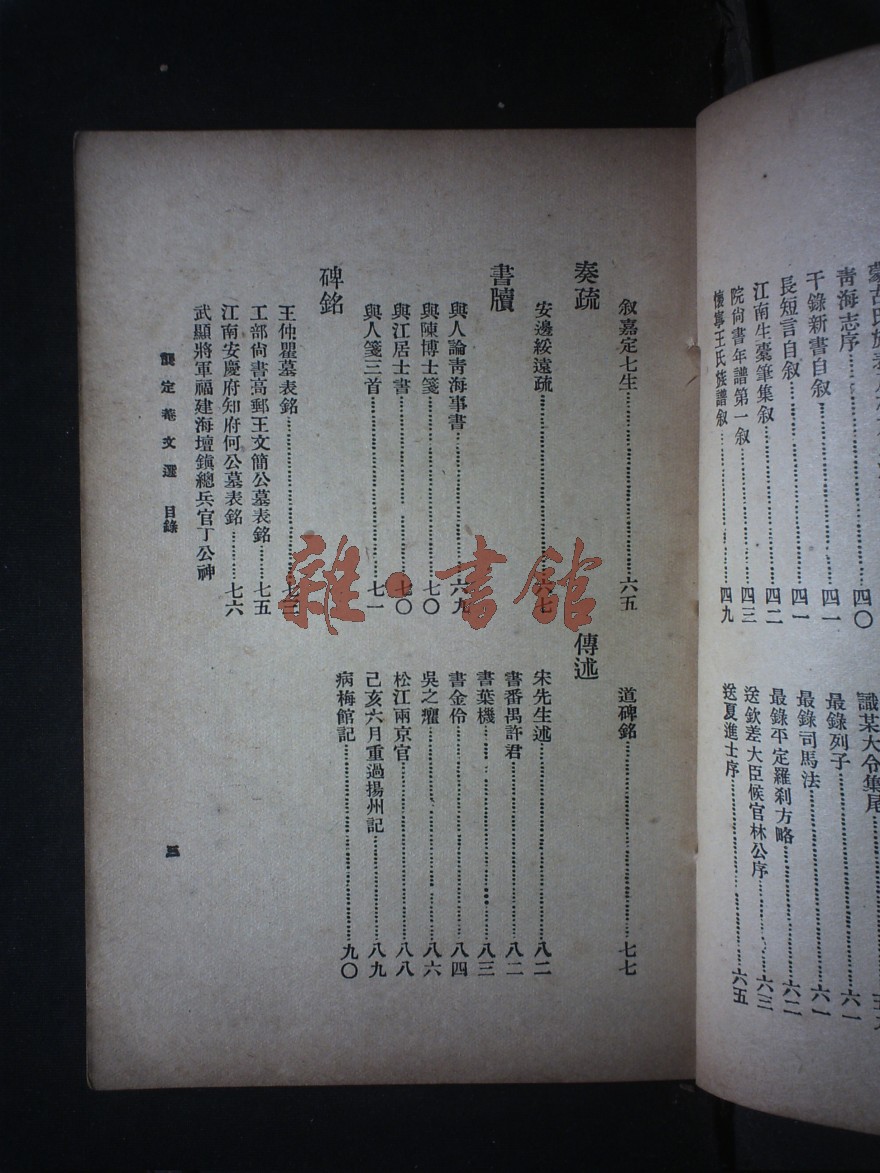 青海志序……四〇
干錄新書自叙……四一
長短言自叙……四一
江南生橐筆集叙……四二
院尚書年譜第一叙……四三
懷寧王氏族譜叙……四九
識某大令集尾
最錄列子……六一
最錄司馬法……六一
最錄平定羅刹方略……六二
送欽差大臣候官林公序……六三
送夏進士序……六五
叙嘉定七生……六五
奏疏
安邊綏遠疏……六七
書牘
與人論靑海事書……六九
與陳博士箋……七〇
與江居士書……七〇
與人箋三首……七一
碑銘
王仲瞿墓表銘……七三
工部尚書高郵王文簡公墓表銘……七五
江南安慶府知府何公墓表銘……七六
武顯將軍福建海壇鎭總兵官丁公神
道碑銘……七七
傳述
宋先生述……八二
書番禺許君……八二
書葉機……八三
書金伶……八四
吳之癯……八六
松江兩京官……八八
己亥六月重過揚州記……八九
病梅館記……九〇
龔定菴文選 目錄
三
雜·書館